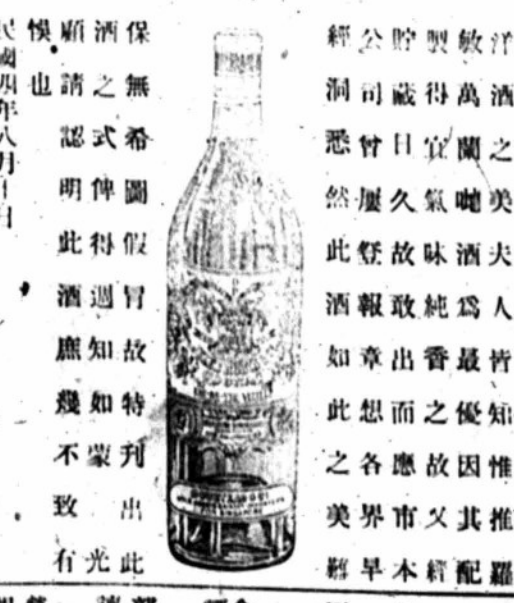 洋酒之美夫人皆知惟推羅
敏萬蘭哋酒爲最優因其配
製得宜氣味純香之故又經
貯藏日久故敢出而應市本
公司曾屢登報章想各界早
經洞悉然此酒如此之美難
保無希圖假冒故特刊出此
酒之式俾得週知如蒙 光
顧請認明此酒庶幾不致有
悞也
民國四年八月